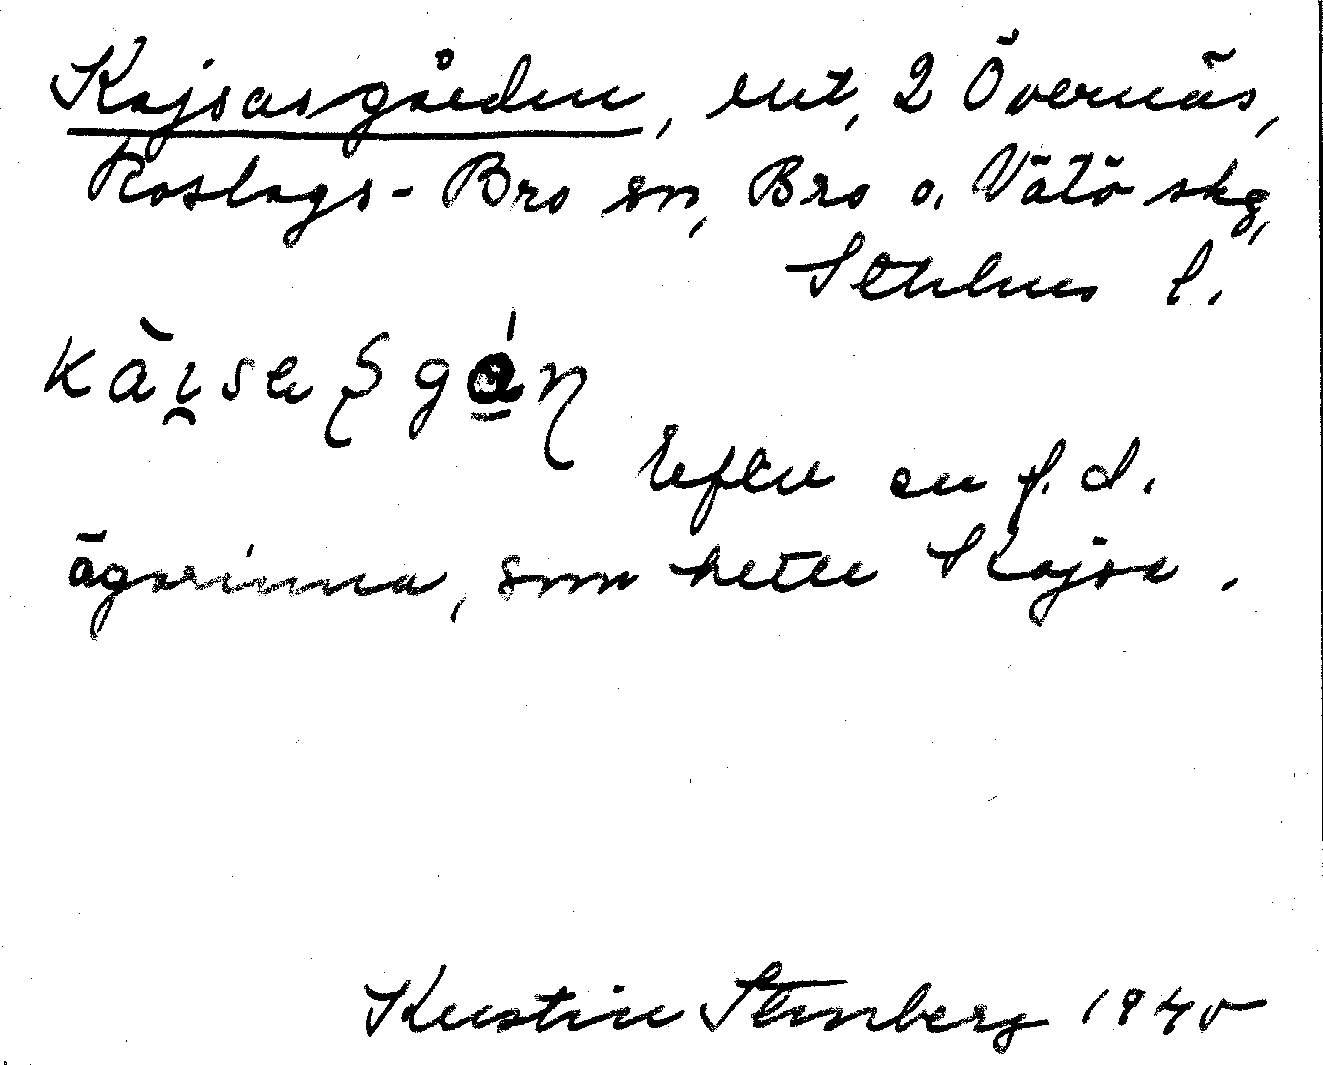 Kajsasgården, ent, 2 Övernäs,
Roslags-Bro sn, Bro o. Vätö skg,
Sthlms l.
Efter en f.d.
ägarinna, som hette Kajsa.
Kerstin Stenberg 1940